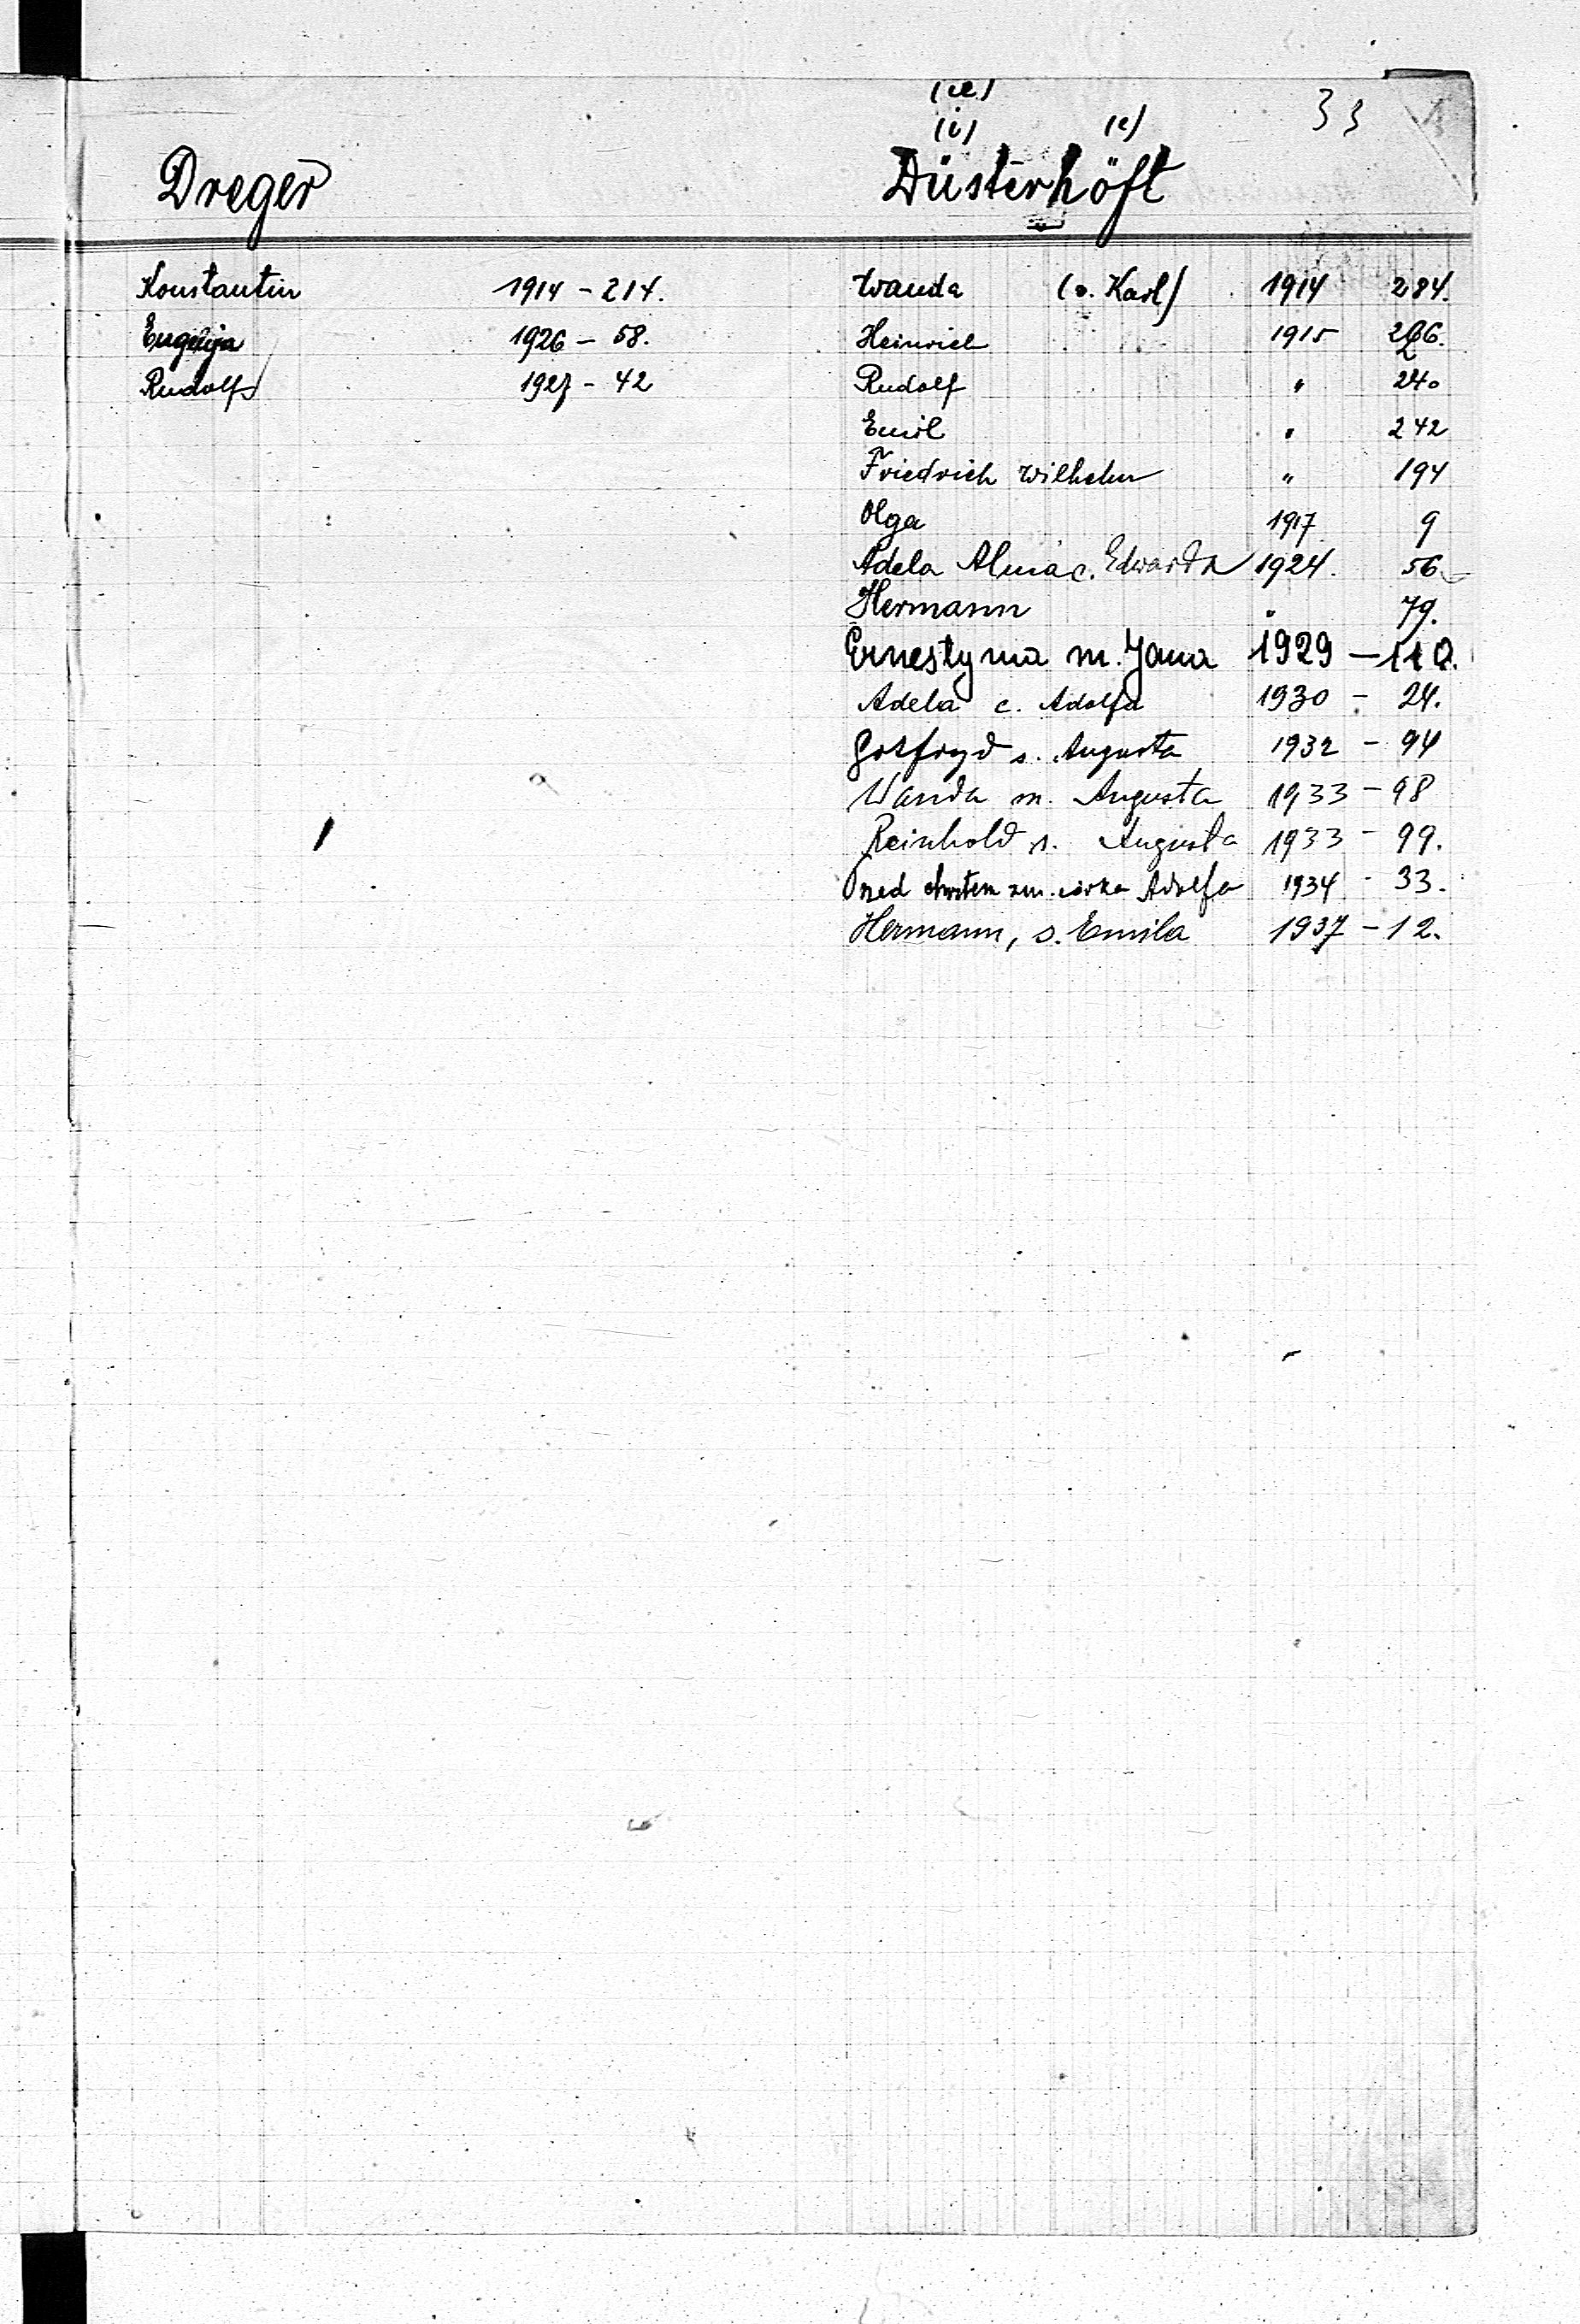 33
Dreger
Konstantin 1914 - 214.
Eugenja 1926 - 58.
Rudolf 1927 - 42
(ue)
(i) (e)
Düsterhöft
Wanda (v. Karl) 1914 284.
Heinrich 1915
Rudolf " 240
Emil " 242
Friedrich Wilhelm " 194
Olga 1917 9
Adela Alma c. Edwarda 1924. 56
Hermann " 79.
Ernestyna m. Jana 1929 - 110.
Adela c. Adolfa 1930 - 24.
Gotfryd s. Augusta 1932 - 94
Wanda m. Augusta 1933 - 98
Reinhold s. Augusta 1933 - 99.
Przed chrztem zm. córka Adolfa 1934 - 33.
Hermann, s. Emila 1937 - 12.